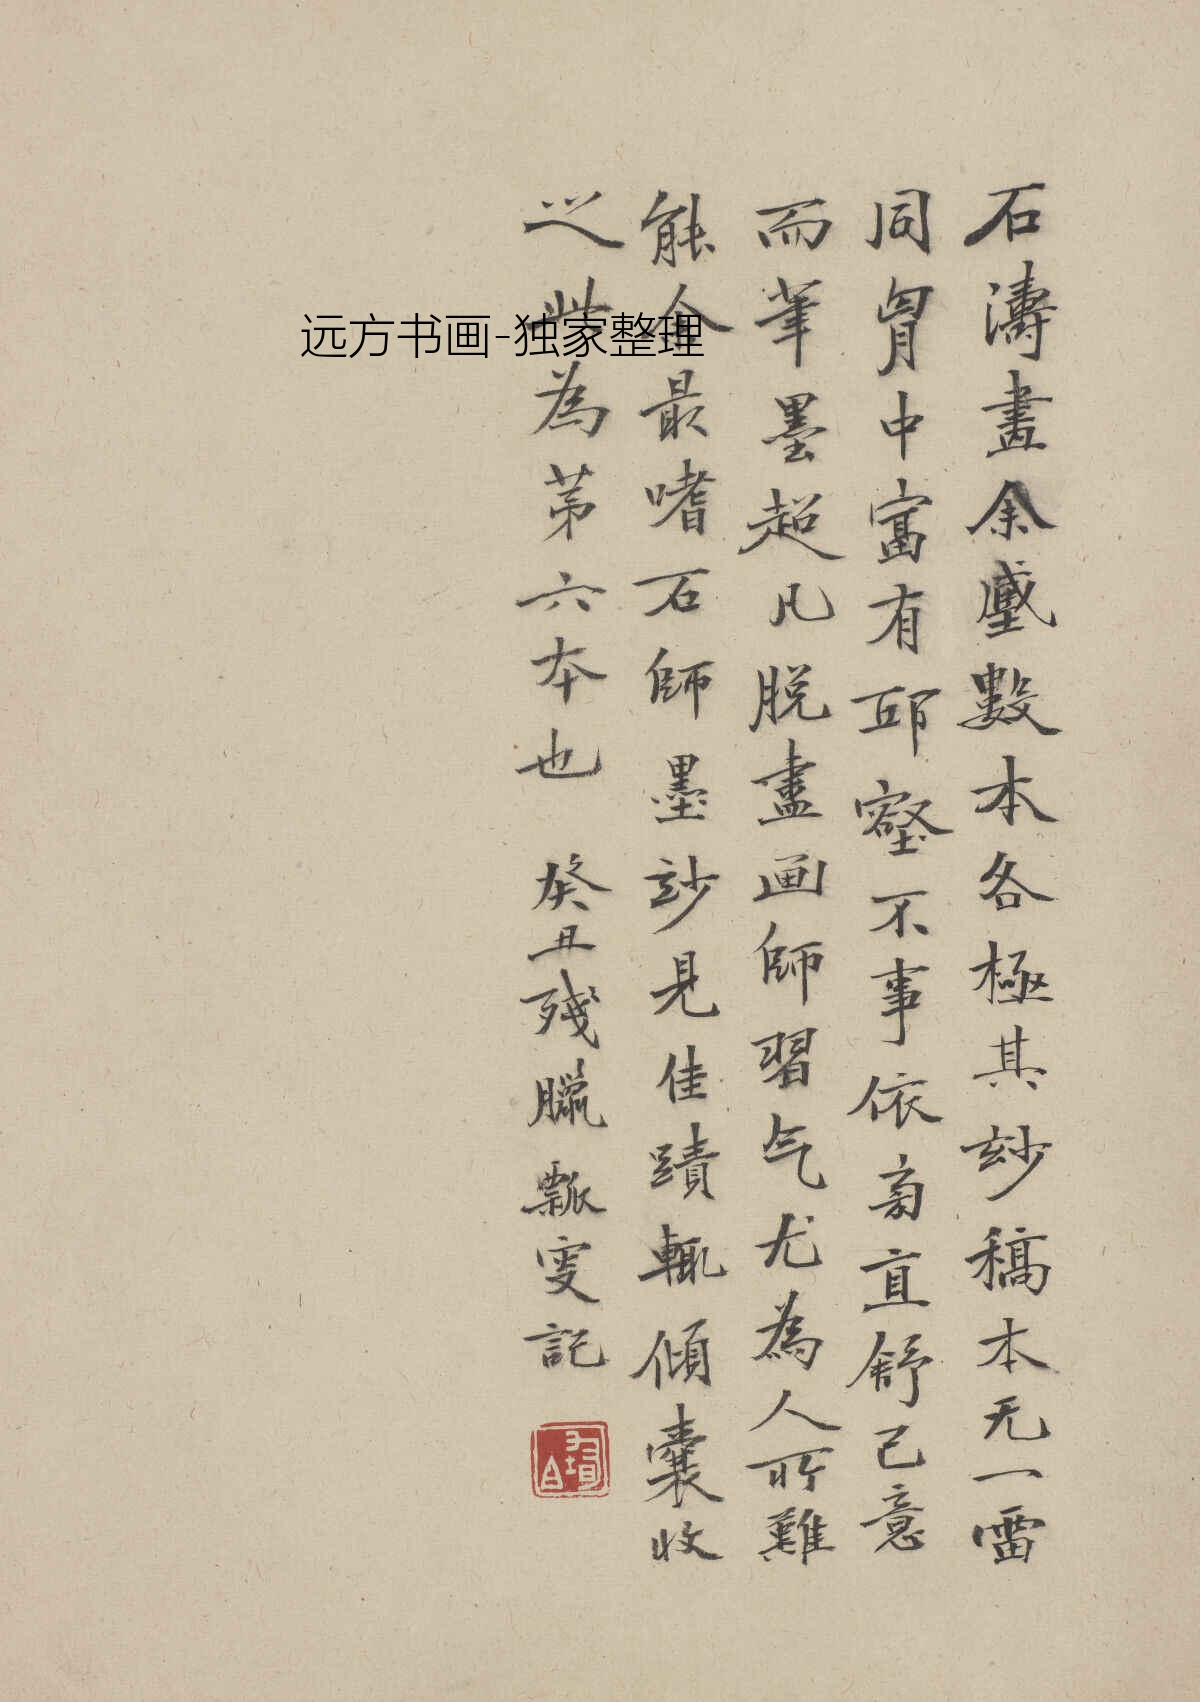 石濤畫余蓄數本各極其玅稿本无一雷
同胷中富有邱壑不事依旁直舒己意
而筆墨超凡脱盡画師習气尤為人所難
能余最嗜石師墨玅見佳蹟輒傾囊收
之此為苐六本也 癸丑残臘瓢叟記
远方书画-独家整理